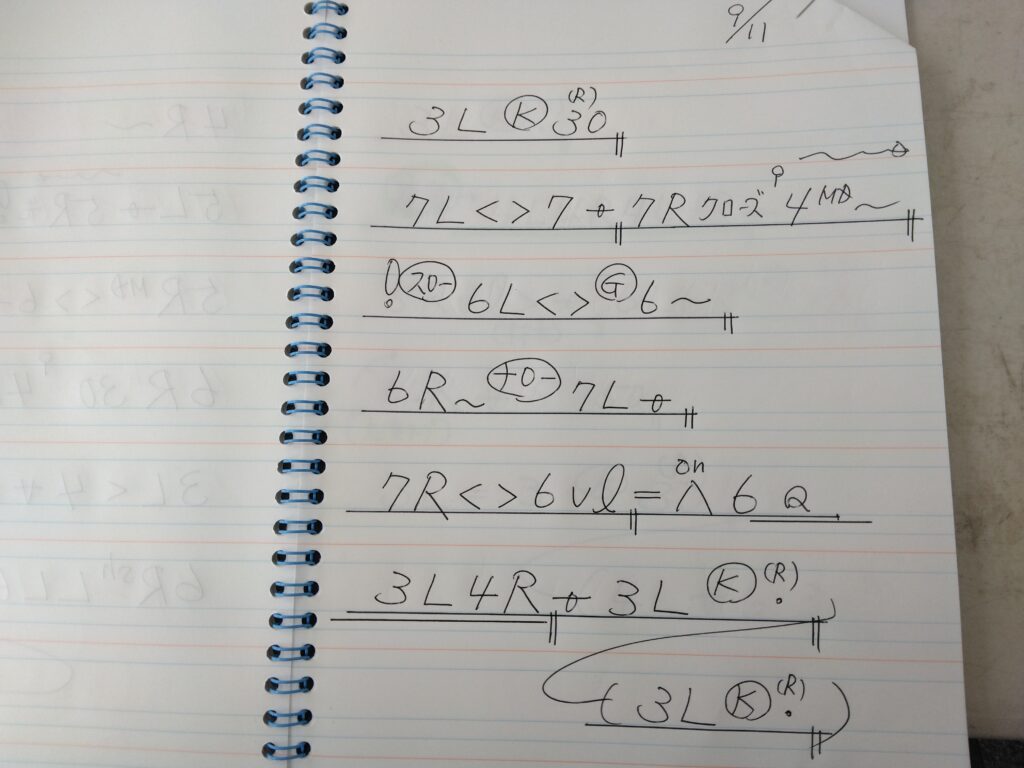 9/11
3L Ⓚ (R) 30
7L<>7 7R クローズ 4 MD ~
! スロー 6L<> Ⓖ 6~
6R~ ナロー 7L
7R<>6 vl = on Λ 6 Q
3L4R 3L Ⓚ (R)
(3L Ⓚ (R))